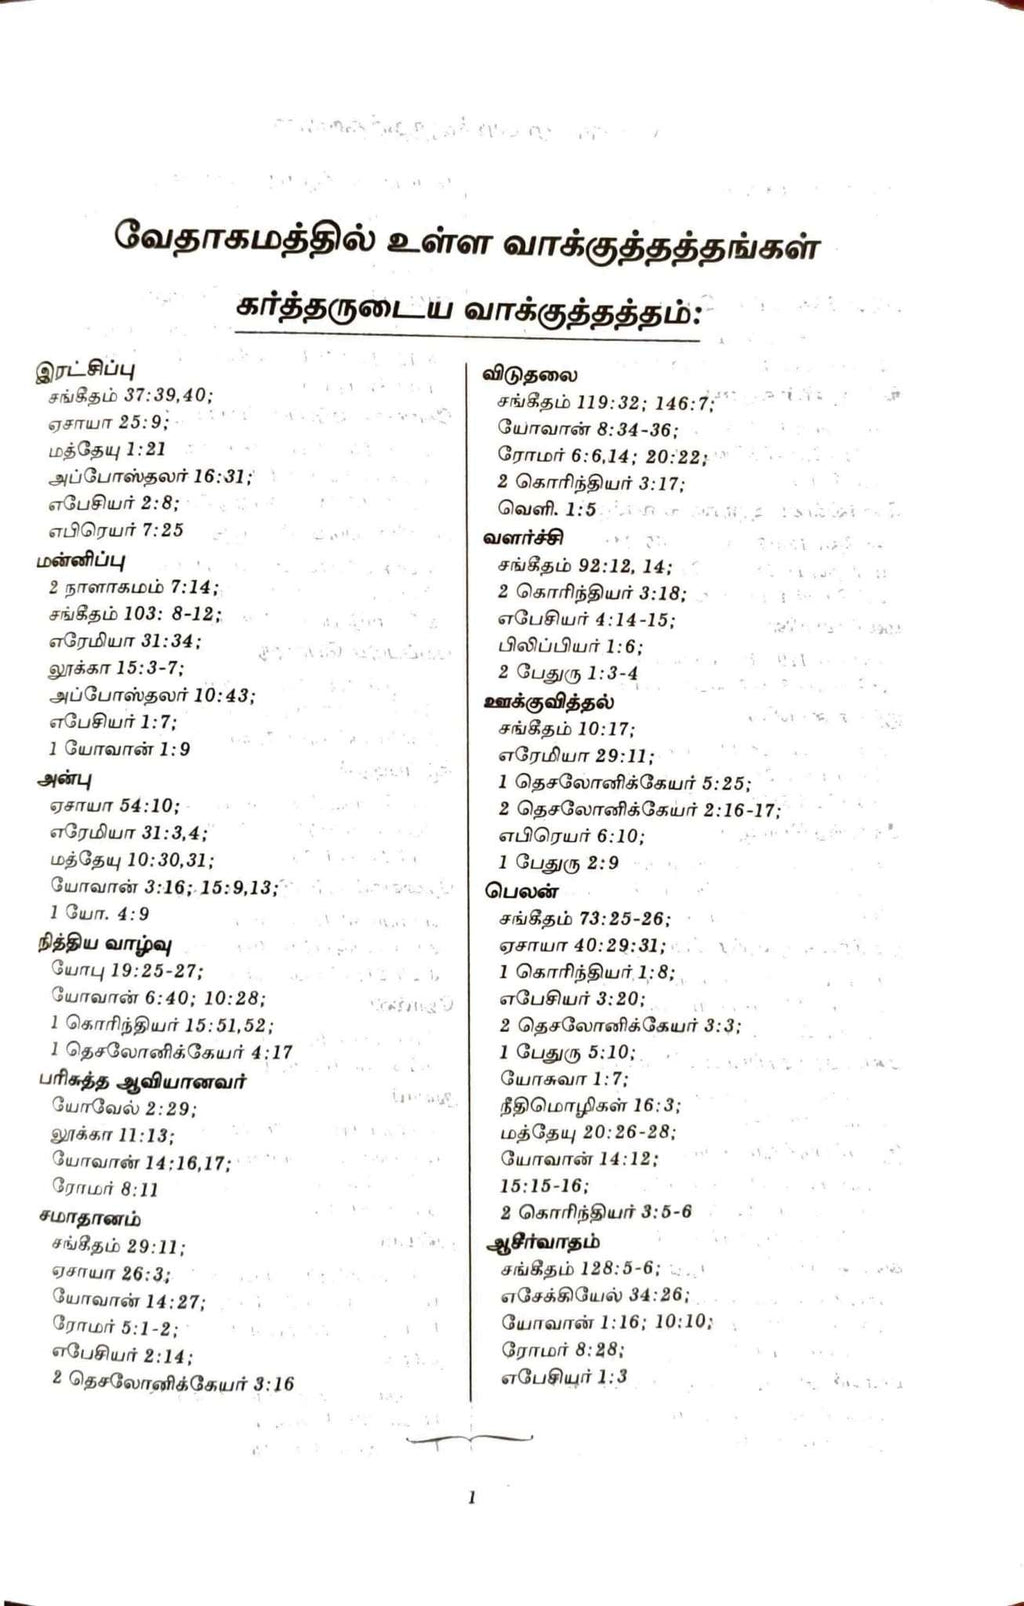 வேதாகமத்தில் உள்ள வாக்குத்தத்தங்கள்
கர்த்தருடைய வாக்குத்தத்தம்:
இரட்சிப்பு
சங்கீதம் 37:39,40;
ஏசாயா 25:9;
மத்தேயு 1:21
அப்போஸ்தலர் 16:31;
எபேசியர் 2:8;
எபிரெயர் 7:25
மன்னிப்பு
2 நாளாகமம் 7:14;
சங்கீதம் 103: 8-12;
எரேமியா 31:34;
லூக்கா 15:3-7;
அப்போஸ்தலர் 10:43;
எபேசியர் 1:7;
1 யோவான் 1:9
அன்பு
ஏசாயா 54:10;
எரேமியா 31:3,4;
மத்தேயு 10:30,31;
யோவான் 3:16; 15:9,13;
1 யோ. 4:9
நித்திய வாழ்வு
யோபு 19:25-27;
யோவான் 6:40; 10:28;
1 கொரிந்தியர் 15:51,52;
1 தெசலோனிக்கேயர் 4:17
பரிசுத்த ஆவியானவர்
யோவேல் 2:29;
லூக்கா 11:13;
யோவான் 14:16,17;
ரோமர் 8:11
சமாதானம்
சங்கீதம் 29:11;
ஏசாயா 26:3;
யோவான் 14:27;
ரோமர் 5:1-2;
எபேசியர் 2:14;
2 தெசலோனிக்கேயர் 3:16
விடுதலை
சங்கீதம் 119:32; 146:7;
யோவான் 8:34-36;
ரோமர் 6:6,14; 20:22;
2 கொரிந்தியர் 3:17;
வெளி. 1:5
வளர்ச்சி
சங்கீதம் 92:12, 14;
2 கொரிந்தியர் 3:18;
எபேசியர் 4:14-15;
பிலிப்பியர் 1:6;
2 பேதுரு 1:3-4
ஊக்குவித்தல்
சங்கீதம் 10:17;
எரேமியா 29:11;
1 தெசலோனிக்கேயர் 5:25;
2 தெசலோனிக்கேயர் 2:16-17;
எபிரெயர் 6:10;
1 பேதுரு 2:9
பெலன்
சங்கீதம் 73:25-26;
ஏசாயா 40:29:31;
1 கொரிந்தியர் 1:8;
எபேசியர் 3:20;
2 தெசலோனிக்கேயர் 3:3;
1 பேதுரு 5:10;
யோசுவா 1:7;
நீதிமொழிகள் 16:3;
மத்தேயு 20:26-28;
யோவான் 14:12;
15:15-16;
2 கொரிந்தியர் 3:5-6
ஆசீர்வாதம்
சங்கீதம் 128:5-6;
எசேக்கியேல் 34:26;
யோவான் 1:16; 10:10;
ரோமர் 8:28;
எபேசியர் 1:3
1